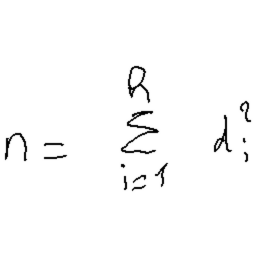 n = \sum_{i=1}^{R} d_i^2